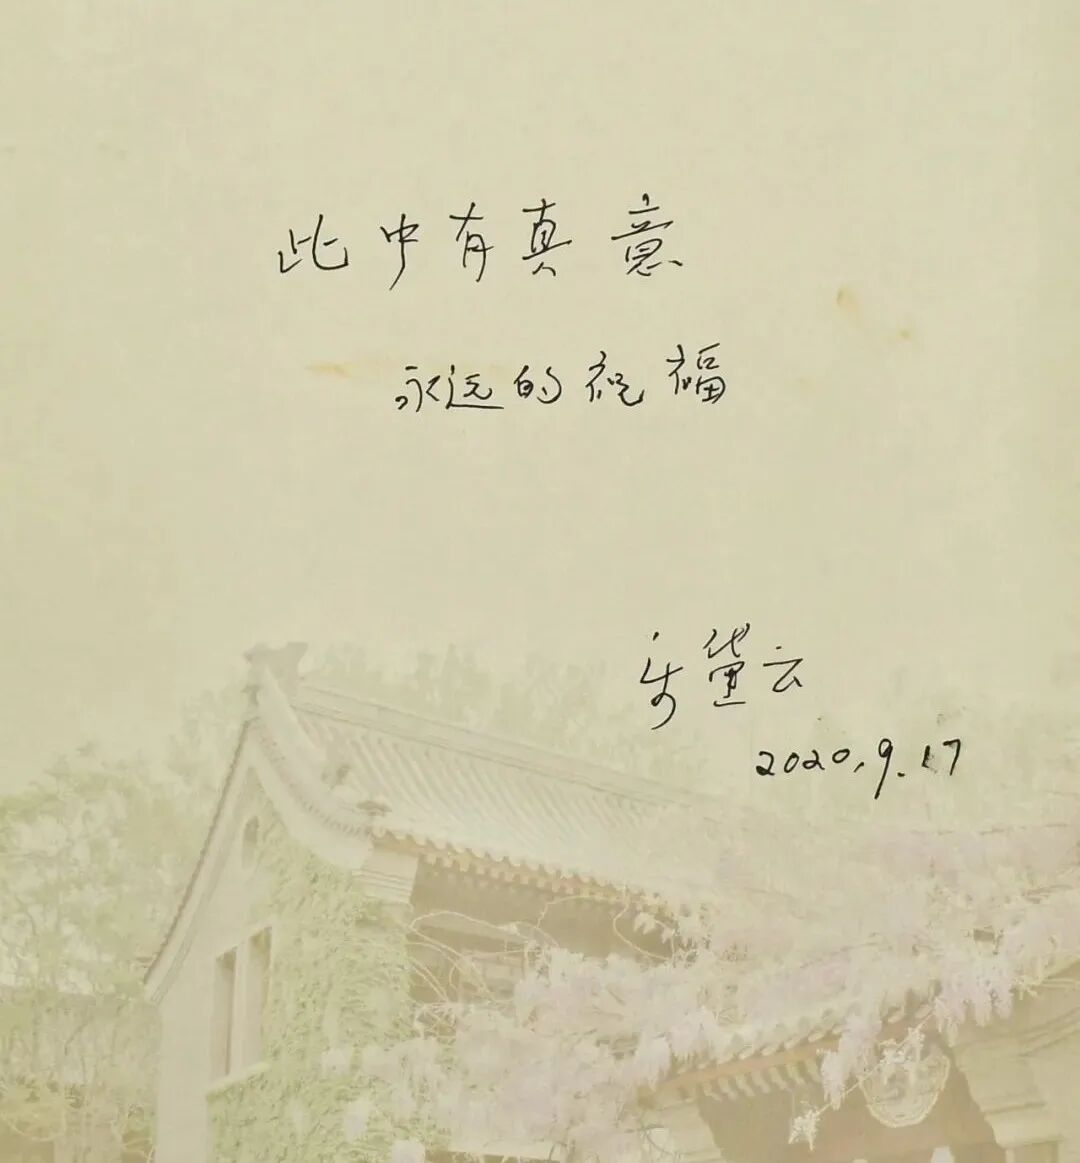 此中有真意
永远的祝福
乐黛云
2020.9.17